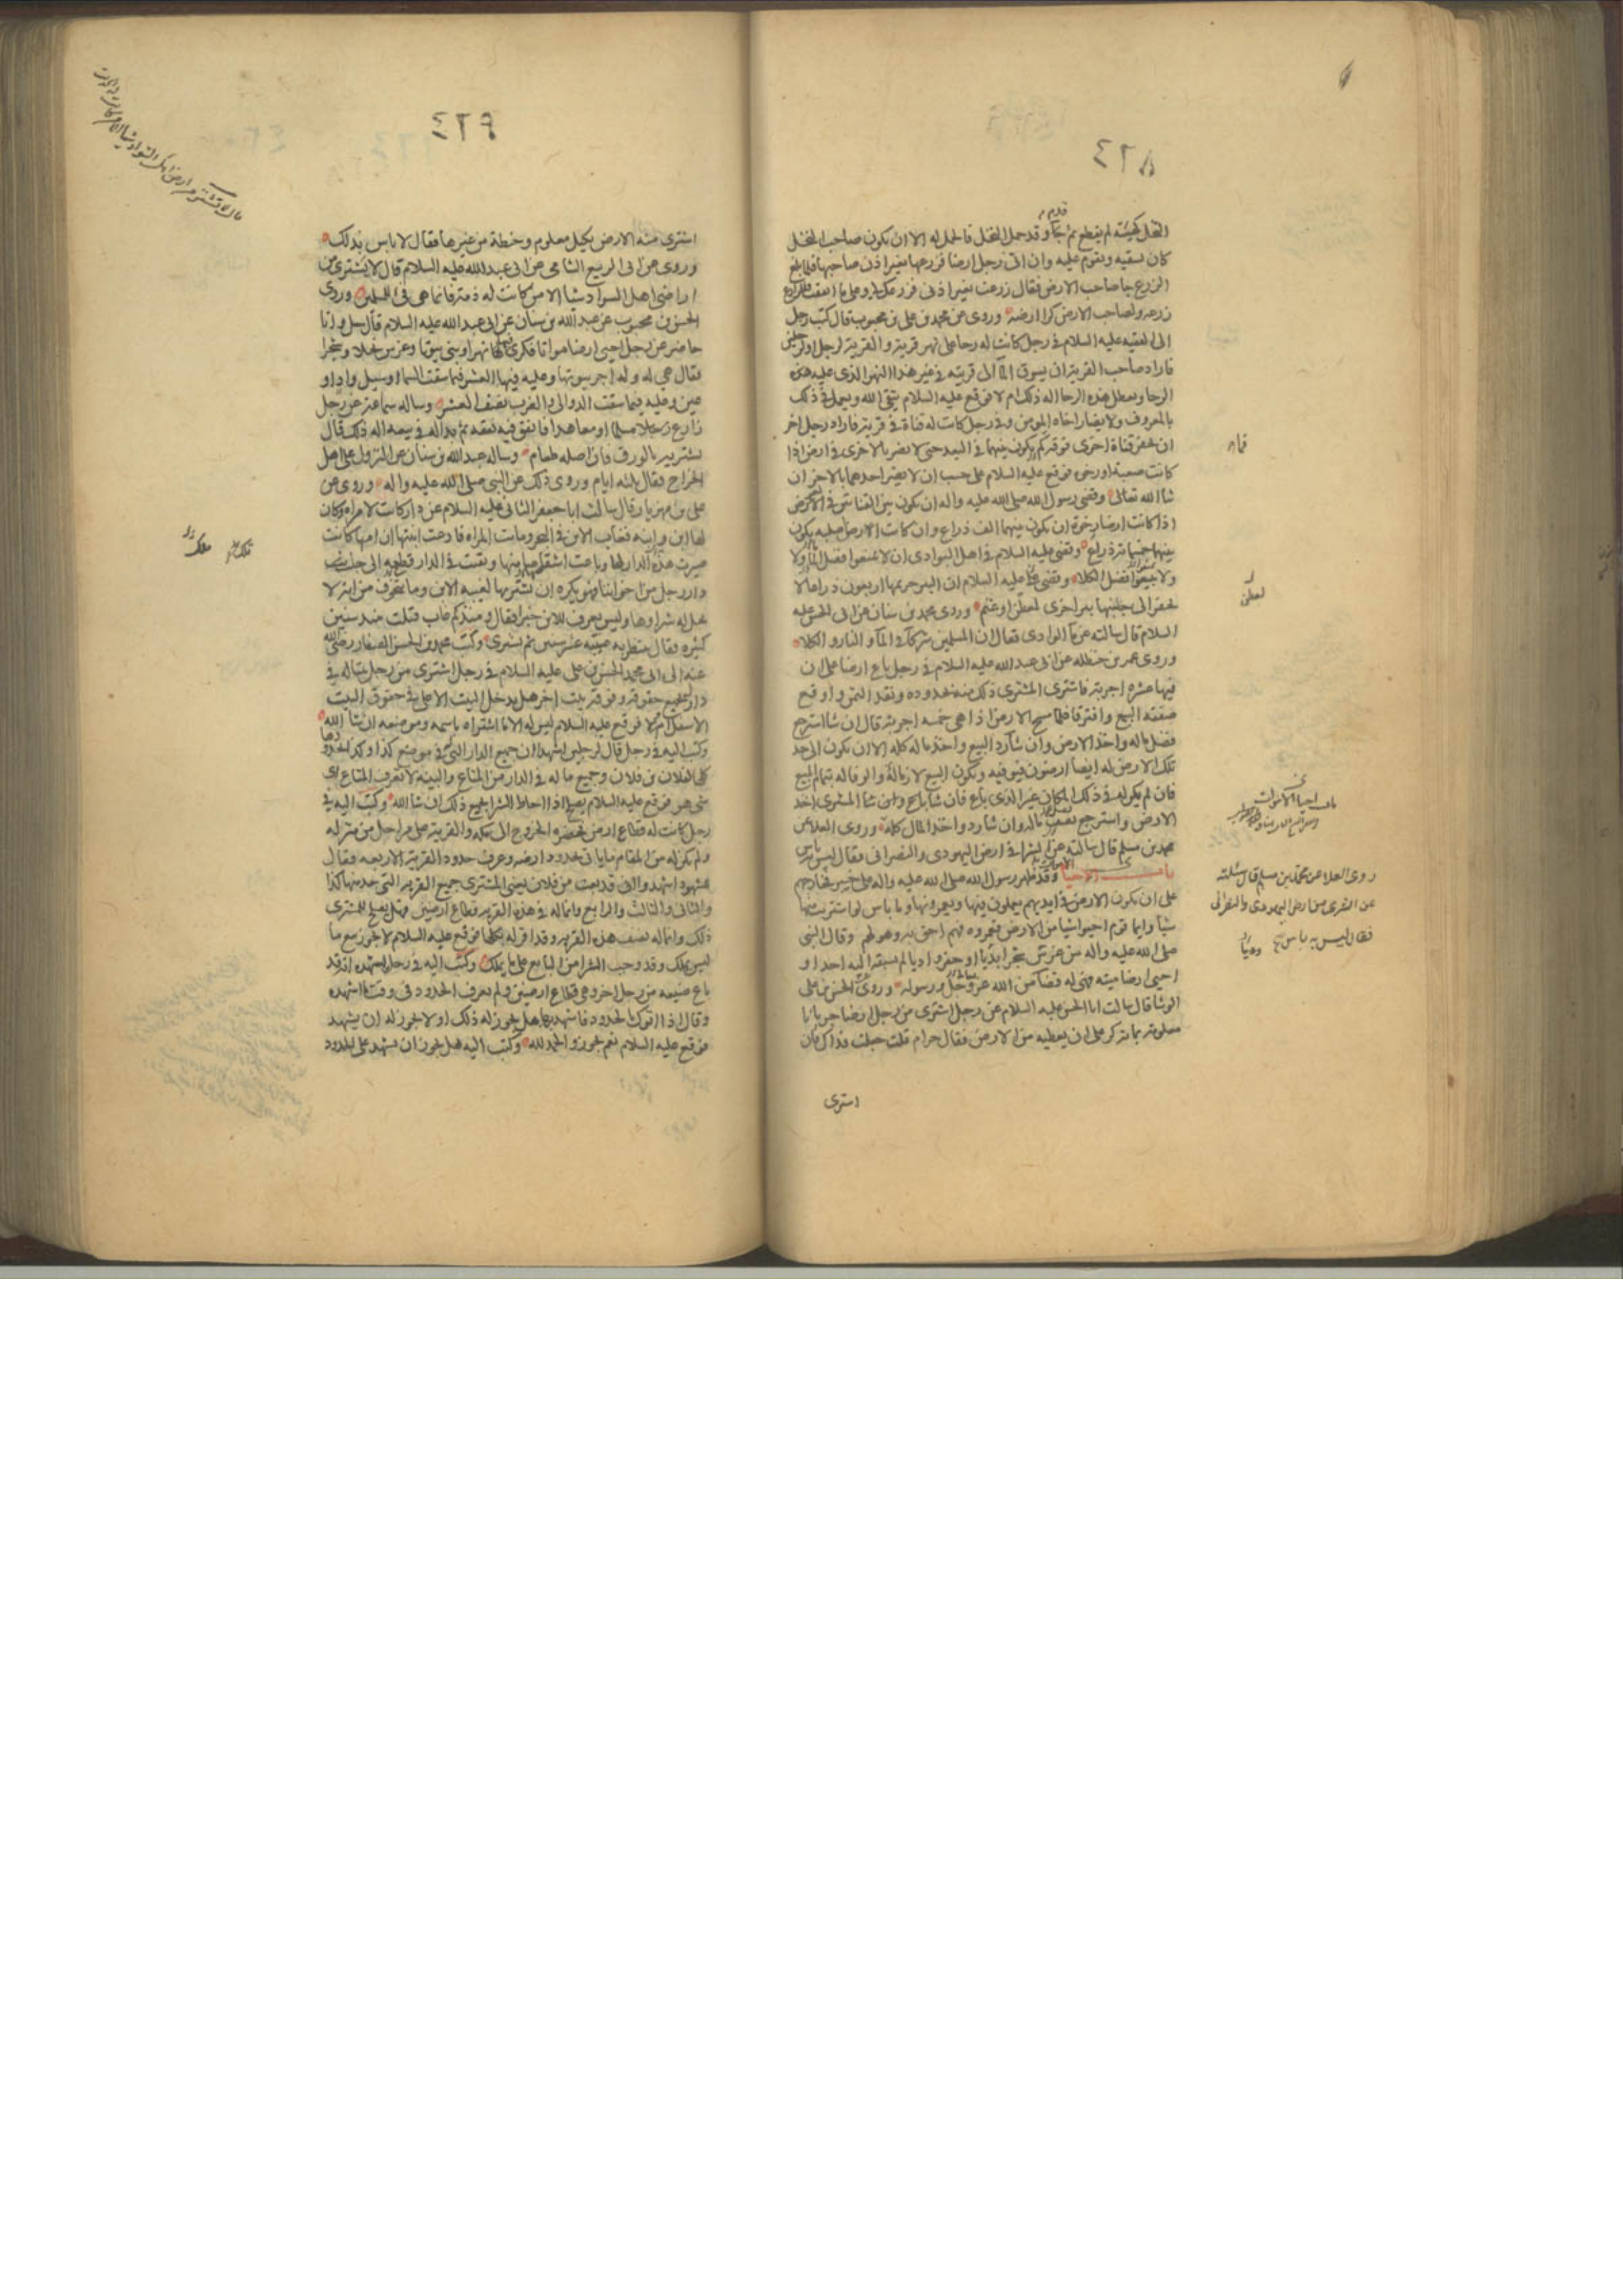 ٤٢٨
النخل كهيئته لم يقطع ثم جاء وقد حمل النخل فالحمل له الا ان يكون صاحب النخل
كان يسقيه ويقوم عليه وان اتى رجل ارضا فزرعها بغير اذن صاحبها فلما بلغ
الزرع جا صاحب الارض فقال زرعت بغير اذنى فزرعك لى وعلى ما انفقت فللزارع
زرعه ولصاحب الارض كرا ارضه وروى عن محمد بن على بن محبوب قال كتب رجل
الى الفقيه عليه السلام فى رجل كانت له رحا على نهر قرية والقرية لرجل او لرجلين
فاراد صاحب القرية ان يسوق المآ الى قريته فى غير هذا النهر الذى عليه هذه
الرحا ويعطل هذه الرحا اله ذلك ام لا فوقع عليه السلام يتقى الله ويعمل فى ذلك
بالمعروف ولا يضار اخاه المومن وفى رجل كانت له قناة فى قرية فاراد رجل اخر
ان يحفر قناة اخرى فوقه كم يكون بينهما فى البعد حتى لا يضر بالاخرى فى ارض اذا
كانت صعبة او رخوة فوقع عليه السلام على حسب ان لا يضر احدهما بالاخر ان
شا الله تعالى وقضى رسول الله صلى الله عليه واله ان يكون بين القناتين فى العرض
اذا كانت ارضا رخوة ان يكون بينهما الف ذراع وان كانت الارض صلبه يكون
بينهما خمسمائة ذراع وقضى عليه السلام فى اهل البوادى ان لا يمنعوا فضل المآ ولا
ولا يبيعوا فضل الكلاء وقضى عليه السلام ان البير حريمها اربعون ذراعا لا
يحفر الى جانبها بير اخرى لعطن او غنم وروى محمد بن سنان عن ابى الحسن عليه
السلام قال سالته عن مآ الوادى فقال ان المسلمين شركآء فى المآ والنار والكلاء
وروى عمر بن حنظله عن ابى عبد الله عليه السلام فى رجل باع ارضا على ان
فيها عشره اجربة فاشترى المشترى ذلك منه بحدوده ونقد الثمن واوقع
صفقة البيع وافترقا فلما مسح الارض اذا هى خمسه اجربة قال ان شا استرجع
فضل ماله واخذ الارض وان شآ رد البيع واخذ ماله كله الا ان يكون الى حد
تلك الارض له ايضا ارضون فيوفيه ويكون البيع لازما له والوفا له بتمام البيع
فان لم يكن له فى ذلك المكان غير الذى باع فان شا باع وان شا المشترى اخذ
الارض واسترجع فضل ماله وان شا رد واخذ المال كله وروى العلا عن
محمد بن مسلم قال سالته عن الشرا فى ارض اليهودى والنصرانى فقال ليس به باس
باب الاحيا وقد ظهر رسول الله صلى الله عليه واله على خيبر فخارجهم
على ان يكون الارض فى ايديهم يعملون فيها ويعمرونها وما باس لو اشتريت منها
شيأ وايما قوم احيوا شيا من الارض فعمروه فهم احق به وهو لهم وقال النبى
صلى الله عليه واله من غرس شجرا بديا او حفر واديا لم يسبقه اليه احد او
احيى ارضا ميته فهى له قضآ من الله عز وجل ورسوله وروى الحسن بن على
الوشا قال سالت ابا الحسن عليه السلام عن رجل اشترى من رجل ارضا جربانا
معلومة بمائة كر على ان يعطيه من الارض فقال حرام قلت جعلت فداك فان
اشترى
لعطن
روى العلا عن محمد بن مسلم قال سئلته
عن الشرى من ارض اليهودى والنصرانى
فقال ليس به باس
٤٢٩
اشترى منه الارض بكيل معلوم وحنطة من غيرها فقال لا باس بذلك
وروى عن ابى الربيع الشامى عن ابى عبد الله عليه السلام قال لا يشترى من
اراضى اهل السواد شيا الا من كانت له ذمة فانما هى فئ للمسلمين وروى
الحسن بن محبوب عن عبد الله بن سنان عن ابى عبد الله عليه السلام قال سئل وانا
حاضر عن رجل احيى ارضا مواتا فكرى فيها نهرا وبنى بيوتا وغرس نخلا وشجرا
فقال هى له وله اجر بيوتها وعليه فيها العشر فيما سقت السما او سيل واد او
عين وعليه فيما سقت الدوالى والغرب نصف العشر وساله سماعة عن رجل
زارع رجلا مسلما او معاهدا فانفق فيه نفقه ثم بدا له فى بيعه اله ذلك قال
يشتريه بالورق فان اصله طعام وساله عبد الله بن سنان عن النزول على اهل
الخراج فقال ثلثه ايام وروى ذلك عن النبى صلى الله عليه واله وروى عن
على بن مهزيار قال سالت ابا جعفر الثانى عليه السلام عن دار كانت لامراه وكان
لها ابن وابنه فغاب الابن فى البحر وماتت المراه فادعت ابنتها ان امها كانت
صيرت هذه الدار لها وباعت اشقاصا منها وبقيت فى الدار قطعه الى جانب
دار رجل من اخواننا فهو يكره ان يشتريها لغيبه الابن وما يتخوف من انه لا
يحل له شراوها وليس يعرف للابن خبر فقال ومنذ كم غاب قلت منذ سنين
كثيره فقال ينتظر به غيبته عشر سنين ثم يشترى وكتب محمد بن الحسن الصفار رضى الله
عنه الى ابى محمد الحسن بن على عليه السلام فى رجل اشترى من رجل بيتا له فى
دار بجميع حقوقه وفوقه بيت اخر هل يدخل البيت الاعلى فى حقوق البيت
الاسفل ام لا فوقع عليه السلام ليس له الا ما اشتراه باسمه وموضعه ان شا الله
وكتب اليه فى رجل قال لرجلين اشهدا ان جميع الدار التى فى موضع كذا وكذا بحدودها
كلها لفلان بن فلان وجميع ما له فى الدار من المتاع والبينه لا تعرف المتاع اى
شى هو فوقع عليه السلام يصلح اذا احاط الشرا بجميع ذلك ان شا الله وكتب اليه فى
رجل كانت له قطاع ارضين فحضره الخروج الى مكه والقرية على مراحل من منزله
ولم يكن له من المقام ما ياتى بحدود ارضه وعرف حدود القرية الاربعه فقال
للشهود اشهدوا انى قد بعت من فلان يعنى المشترى جميع القرية التى حد منها كذا
والثانى والثالث والرابع وانما له فى هذه القريه قطاع ارضين فهل يصلح للمشترى
ذلك وانما له نصف هذه القرية وقد اقر له بكلها فوقع عليه السلام لا يجوز بيع ما
ليس يملك وقد وجب الشرا من البايع على ما يملك وكتب اليه فى رجل يشهده انه قد
باع ضيعه من رجل اخر وهى قطاع ارضين ولم يعرف الحدود فى وقت ما اشهده
وقال اذا اتوك بالحدود فاشهد بها هل يجوز له ذلك او لا يجوز له ان يشهد
فوقع عليه السلام نعم يجوز والحمد لله وكتب اليه هل يجوز ان يشهد على الحدود